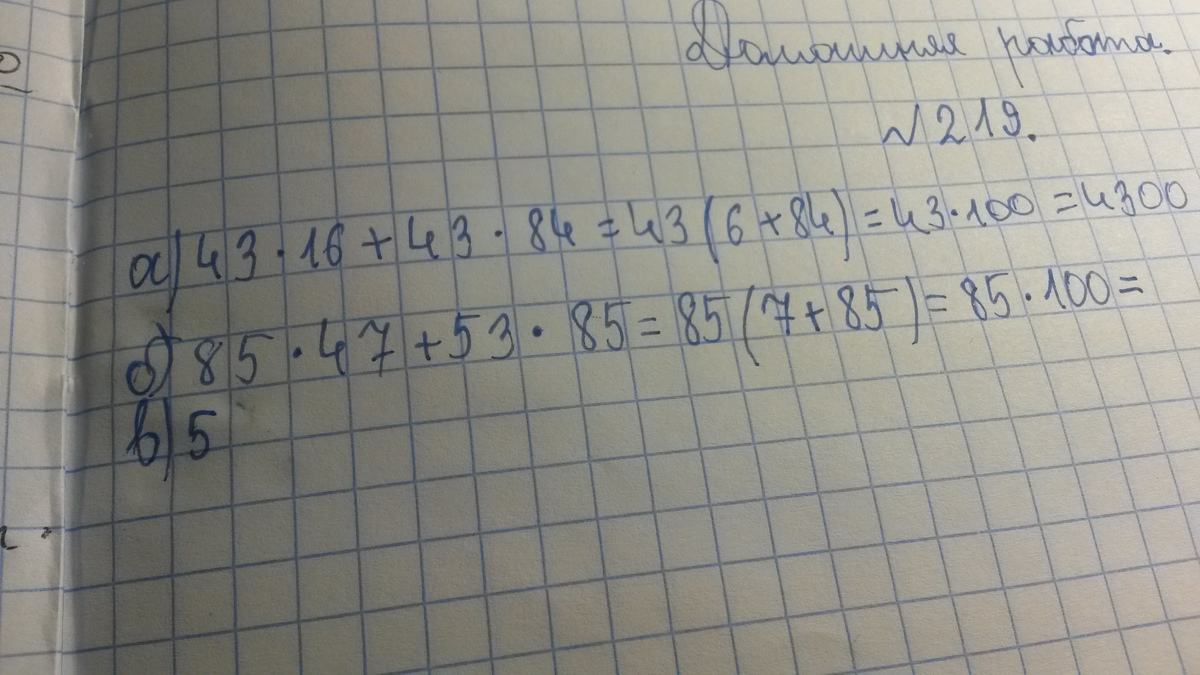 Домашняя работа.
№219.
а) 43·16+43·84=43(6+84)=43·100=4300
б) 85·47+53·85=85(7+85)=85·100=
в) 5